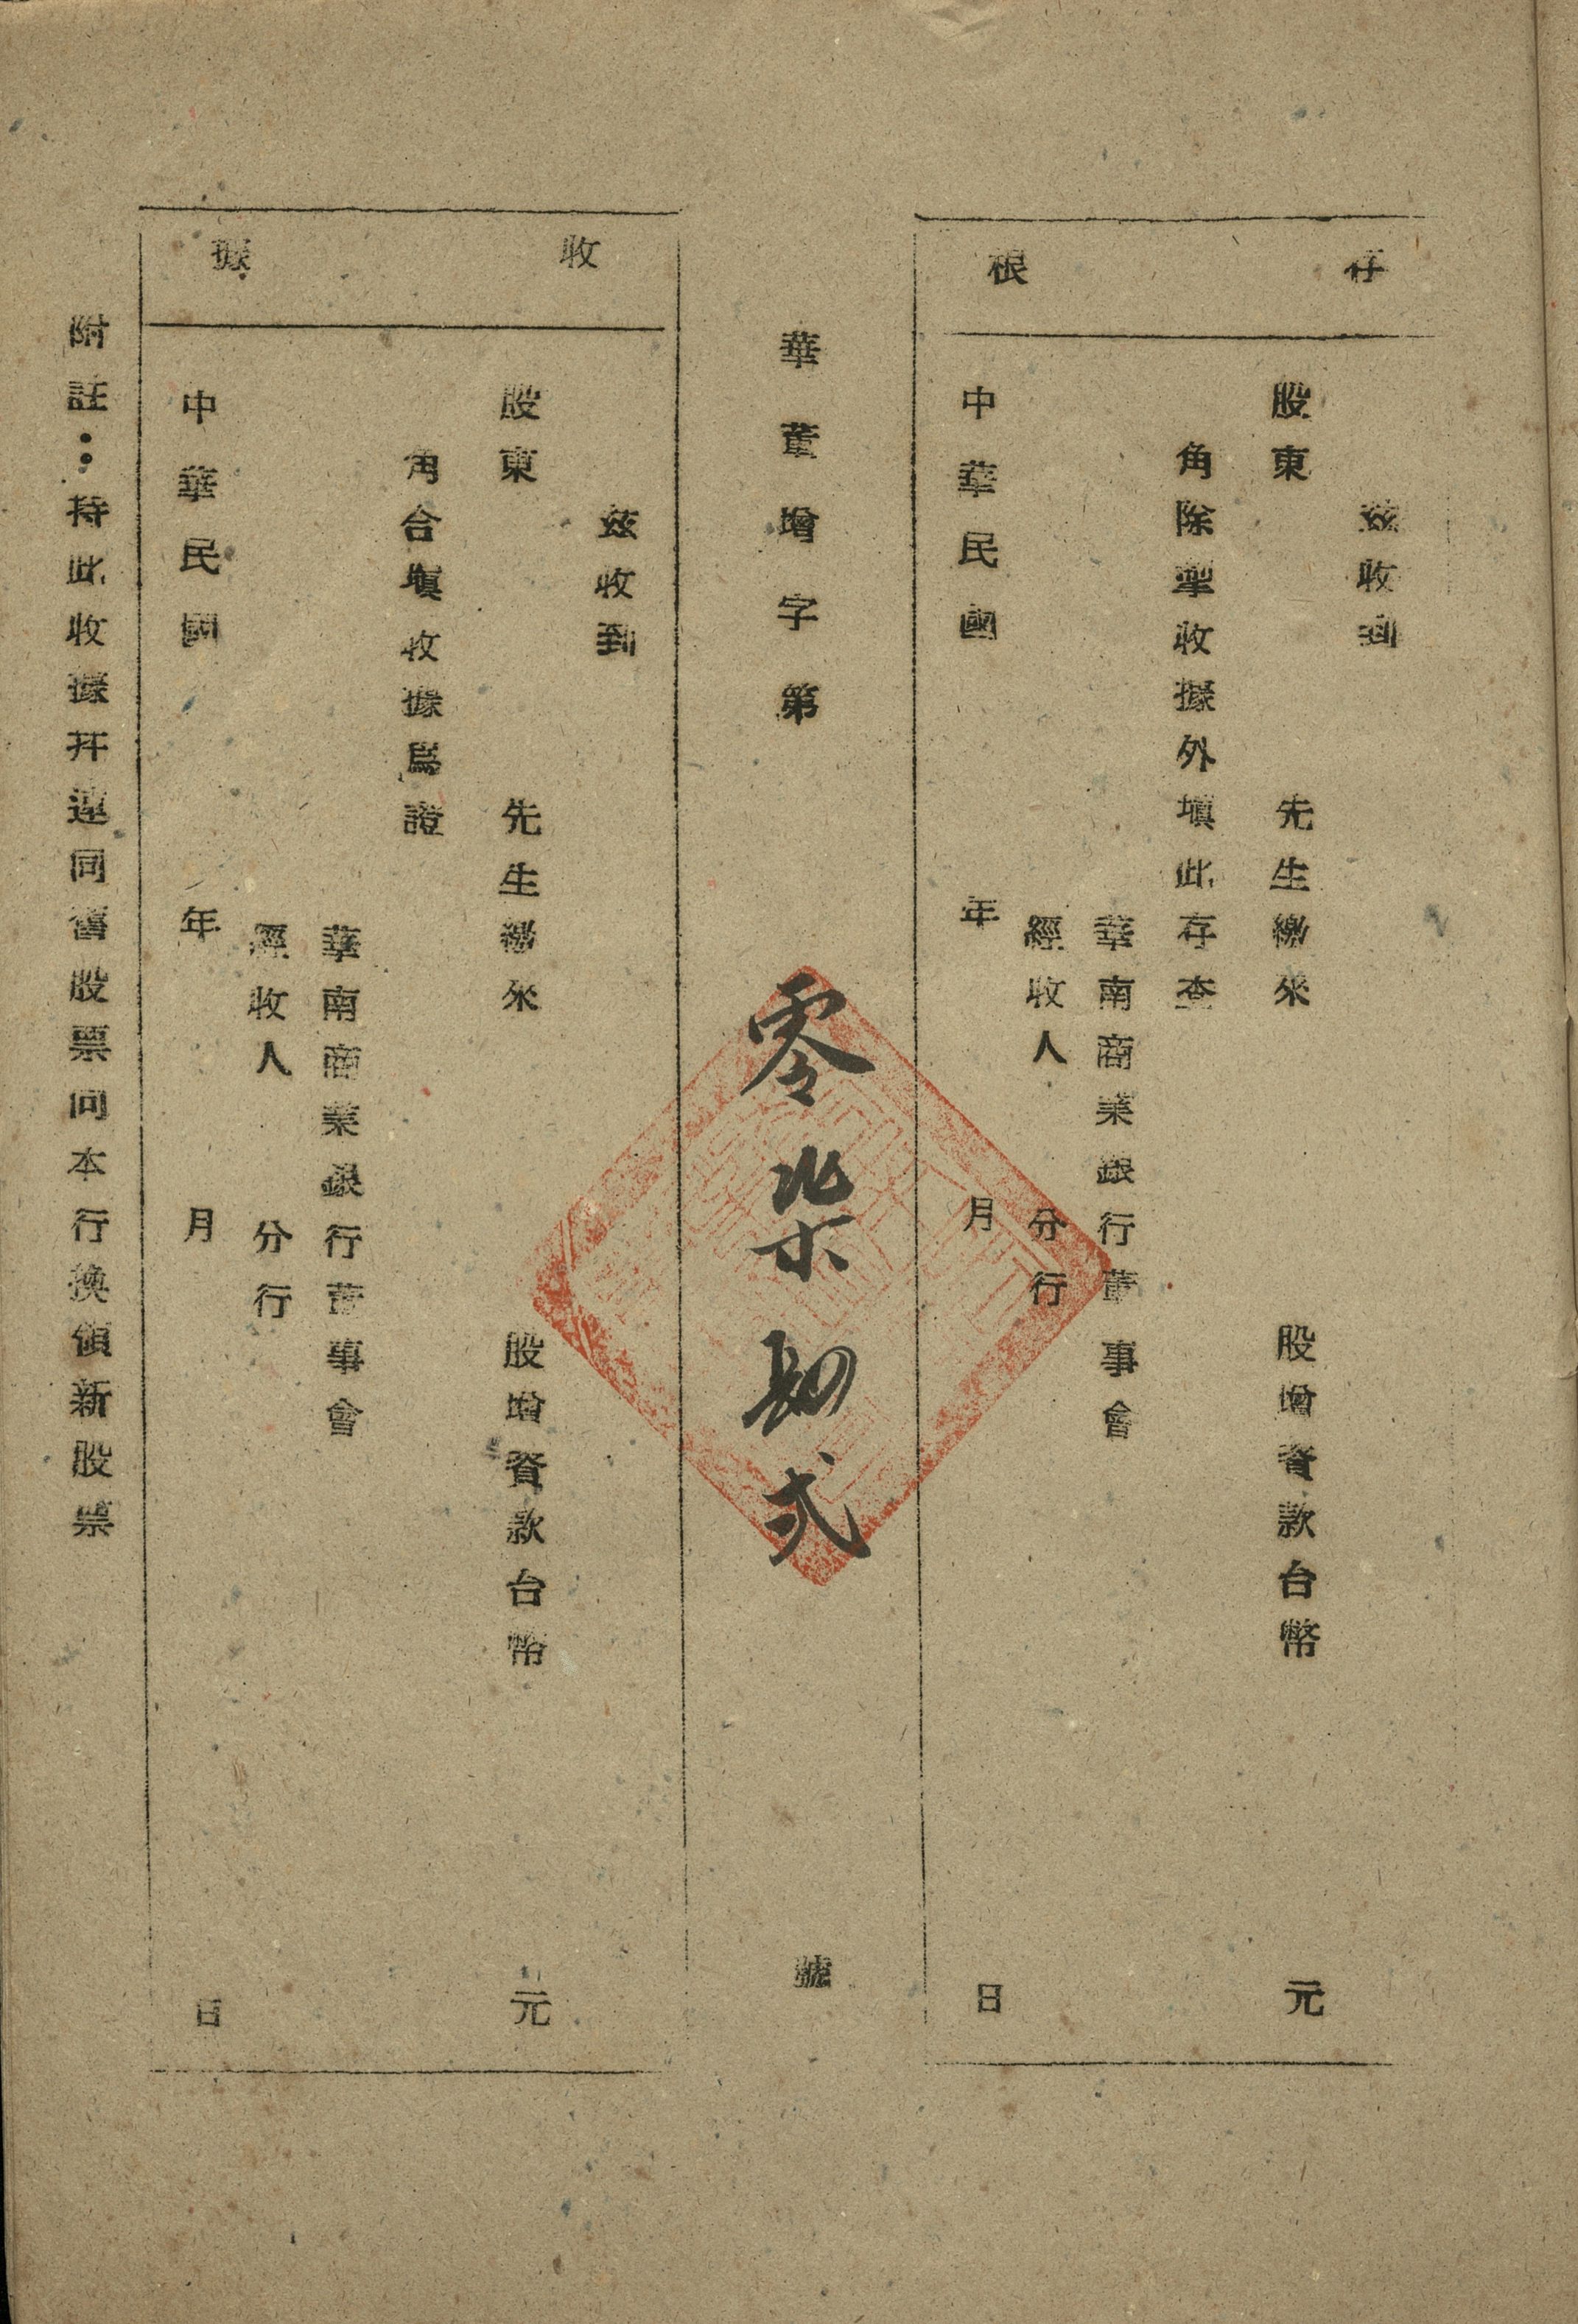 存根
茲收到
股東 先生繳來 股增資款台幣 元
角除掣收據外填此存查
華南商業銀行董事會
經收人 分行
中華民國 年 月 日
華董增字第 零柒肆弍 號
收據
茲收到
股東 先生繳來 股增資款台幣 元
角合塡收據爲證
華南商業銀行董事會
經收人 分行
中華民國 年 月 日
附註：持此收據幷連同舊股票向本行換領新股票